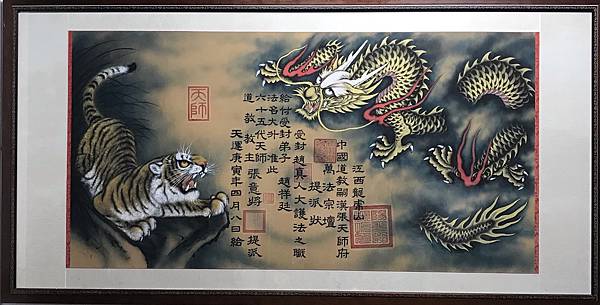 江西龍虎山
中國道教嗣漢張天師府
萬法宗壇
提派狀
受封趙真人大護法之職
給付受封弟子 趙祥廷
法名大外 准此
六十五代天師
道教教主 張意將
天運庚寅年四月八日給
提派
天師